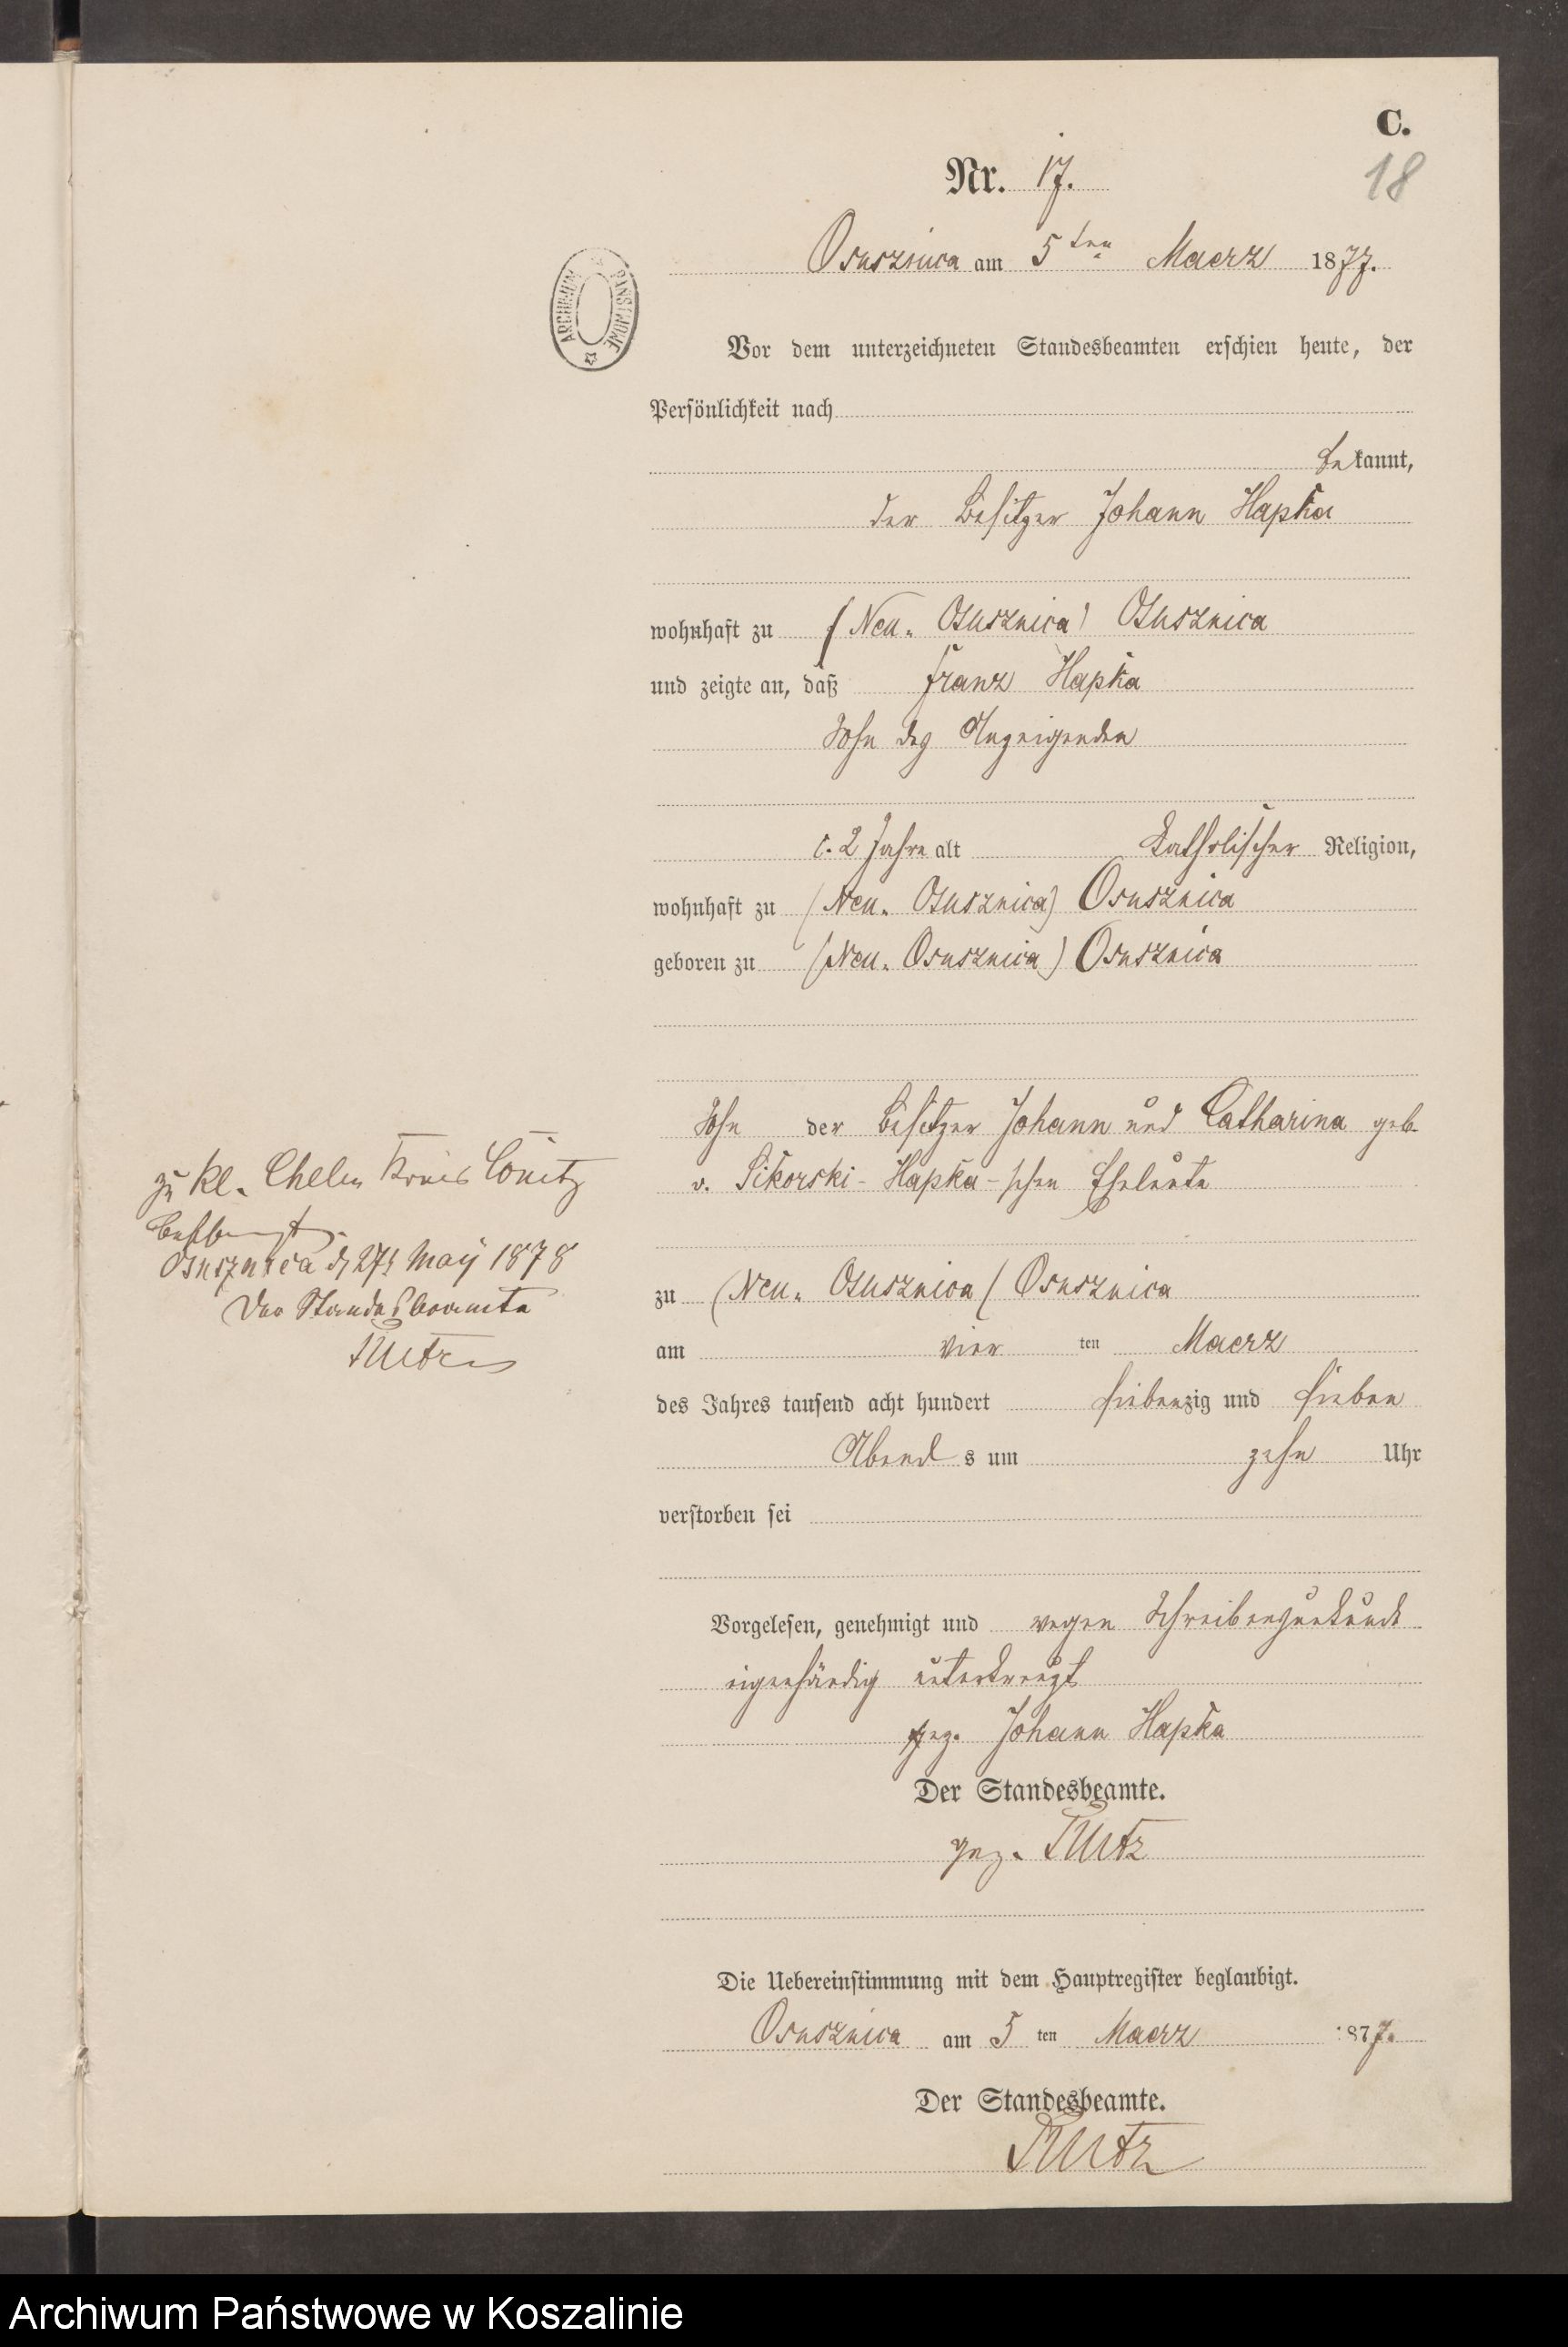 C.
18
Nr. 17.
Osusznica am 5ten Maerz 1877.
ARCHIWUM PAŃSTWOWE
Vor dem unterzeichneten Standesbeamten erschien heute, der
Persönlichkeit nach
bekannt,
der Besitzer Johann Hapka
wohnhaft zu (Neu. Osusznica) Osusznica
und zeigte an, daß Franz Hapka
Sohn des Anzeigenden
c. 2 Jahre alt katholischer Religion,
wohnhaft zu (Neu. Osusznica) Osusznica
geboren zu (Neu. Osusznica) Osusznica
Sohn der Besitzer Johann und Catharina geb.
v. Sikorski-Hapka-schen Eheleute
zu (Neu. Osusznica) Osusznica
am vier ten Maerz
des Jahres tausend acht hundert siebenzig und sieben
Abends um zehn Uhr
verstorben sei
Vorgelesen, genehmigt und wegen Schreibensunkunde
eigenhändig unterkreuzt
gez. Johann Hapka
Der Standesbeamte.
gez.
Die Uebereinstimmung mit dem Hauptregister beglaubigt.
Osusznica am 5 ten Maerz 1877.
Der Standesbeamte.
zu Kl. Chelm Kreis Conitz
Osusznica d 27t May 1878
Der Standesbeamte
Archiwum Państwowe w Koszalinie